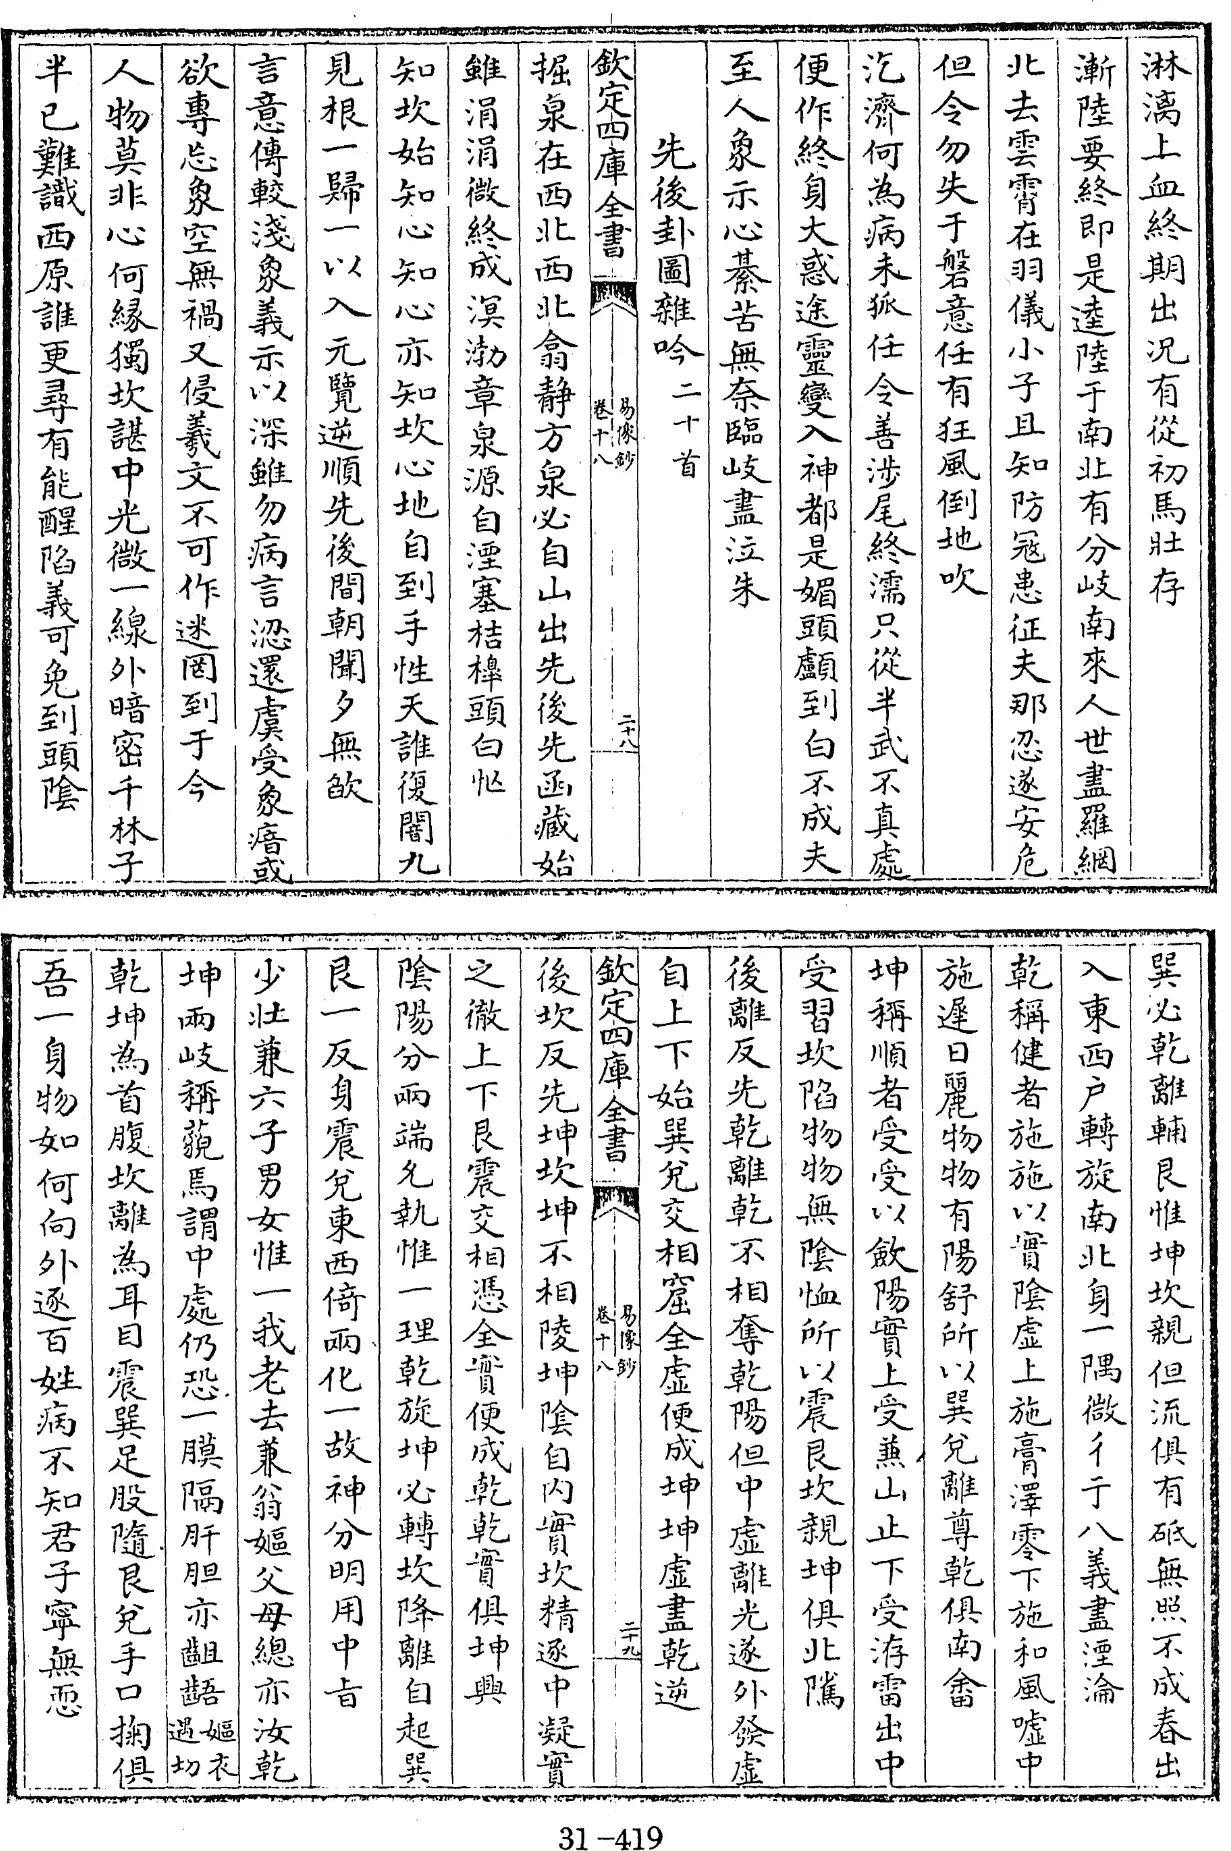 淋漓上血終期出況有從初馬壯存
漸陸要終即是逵陸于南北有分岐南來人世盡羅網
北去雲霄在羽儀小子且知防寇患征夫那忍遂安危
但令勿失于磐意任有狂風倒地吹
汔濟何為病未狐任令善涉尾終濡只從半武不真處
便作終身大惑途靈變入神都是媚頭顱到白不成夫
至人象示心綦苦無奈臨岐盡泣朱
先後卦圖雜吟二十首
欽定四庫全書
易像鈔
卷十八
二十八
掘泉在西北西北翕静方泉必自山出先後先函藏始
雖涓涓微終成溟渤章泉源自湮塞桔槹頭白忙
知坎始知心知心亦知坎心地自到手性天誰復闇九
見根一歸一以入元覽逆順先後間朝聞夕無欿
言意傳較淺象義示以深雖勿病言認還虞受象瘖或
欲專忘象空無禍又侵羲文不可作迷罔到于今
人物莫非心何緣獨坎諶中光微一線外暗密千林子
半已難識西原誰更尋有能醒陷義可免到頭陰
巽必乾離輔艮惟坤坎親但流俱有砥無照不成春出
入東西户轉旋南北身一隅微彳亍八義盡湮淪
乾稱健者施施以實陰虛上施膏澤零下施和風噓中
施遲日麗物物有陽舒所以巽兌離尊乾俱南畬
坤稱順者受受以斂陽實上受兼山止下受洊雷出中
受習坎陷物物無陰恤所以震艮坎親坤俱北隲
後離反先乾離乾不相奪乾陽但中虛離光遂外發虛
自上下始巽兌交相窟全虛便成坤坤虛盡乾逆
欽定四庫全書
易像鈔
卷十八
二十九
後坎反先坤坎坤不相陵坤陰自内實坎精逐中凝實
之徹上下艮震交相憑全實便成乾乾實俱坤興
陰陽分兩端允執惟一理乾旋坤必轉坎降離自起巽
艮一反身震兌東西倚兩化一故神分明用中㫖
少壯兼六子男女惟一我老去兼翁嫗父母總亦汝乾
坤兩岐稱藐焉謂中處仍恐一膜隔肝胆亦齟齬嫗衣遇切
乾坤為首腹坎離為耳目震巽足股隨艮兌手口掬俱
吾一身物如何向外逐百姓病不知君子寧無恧
31-419